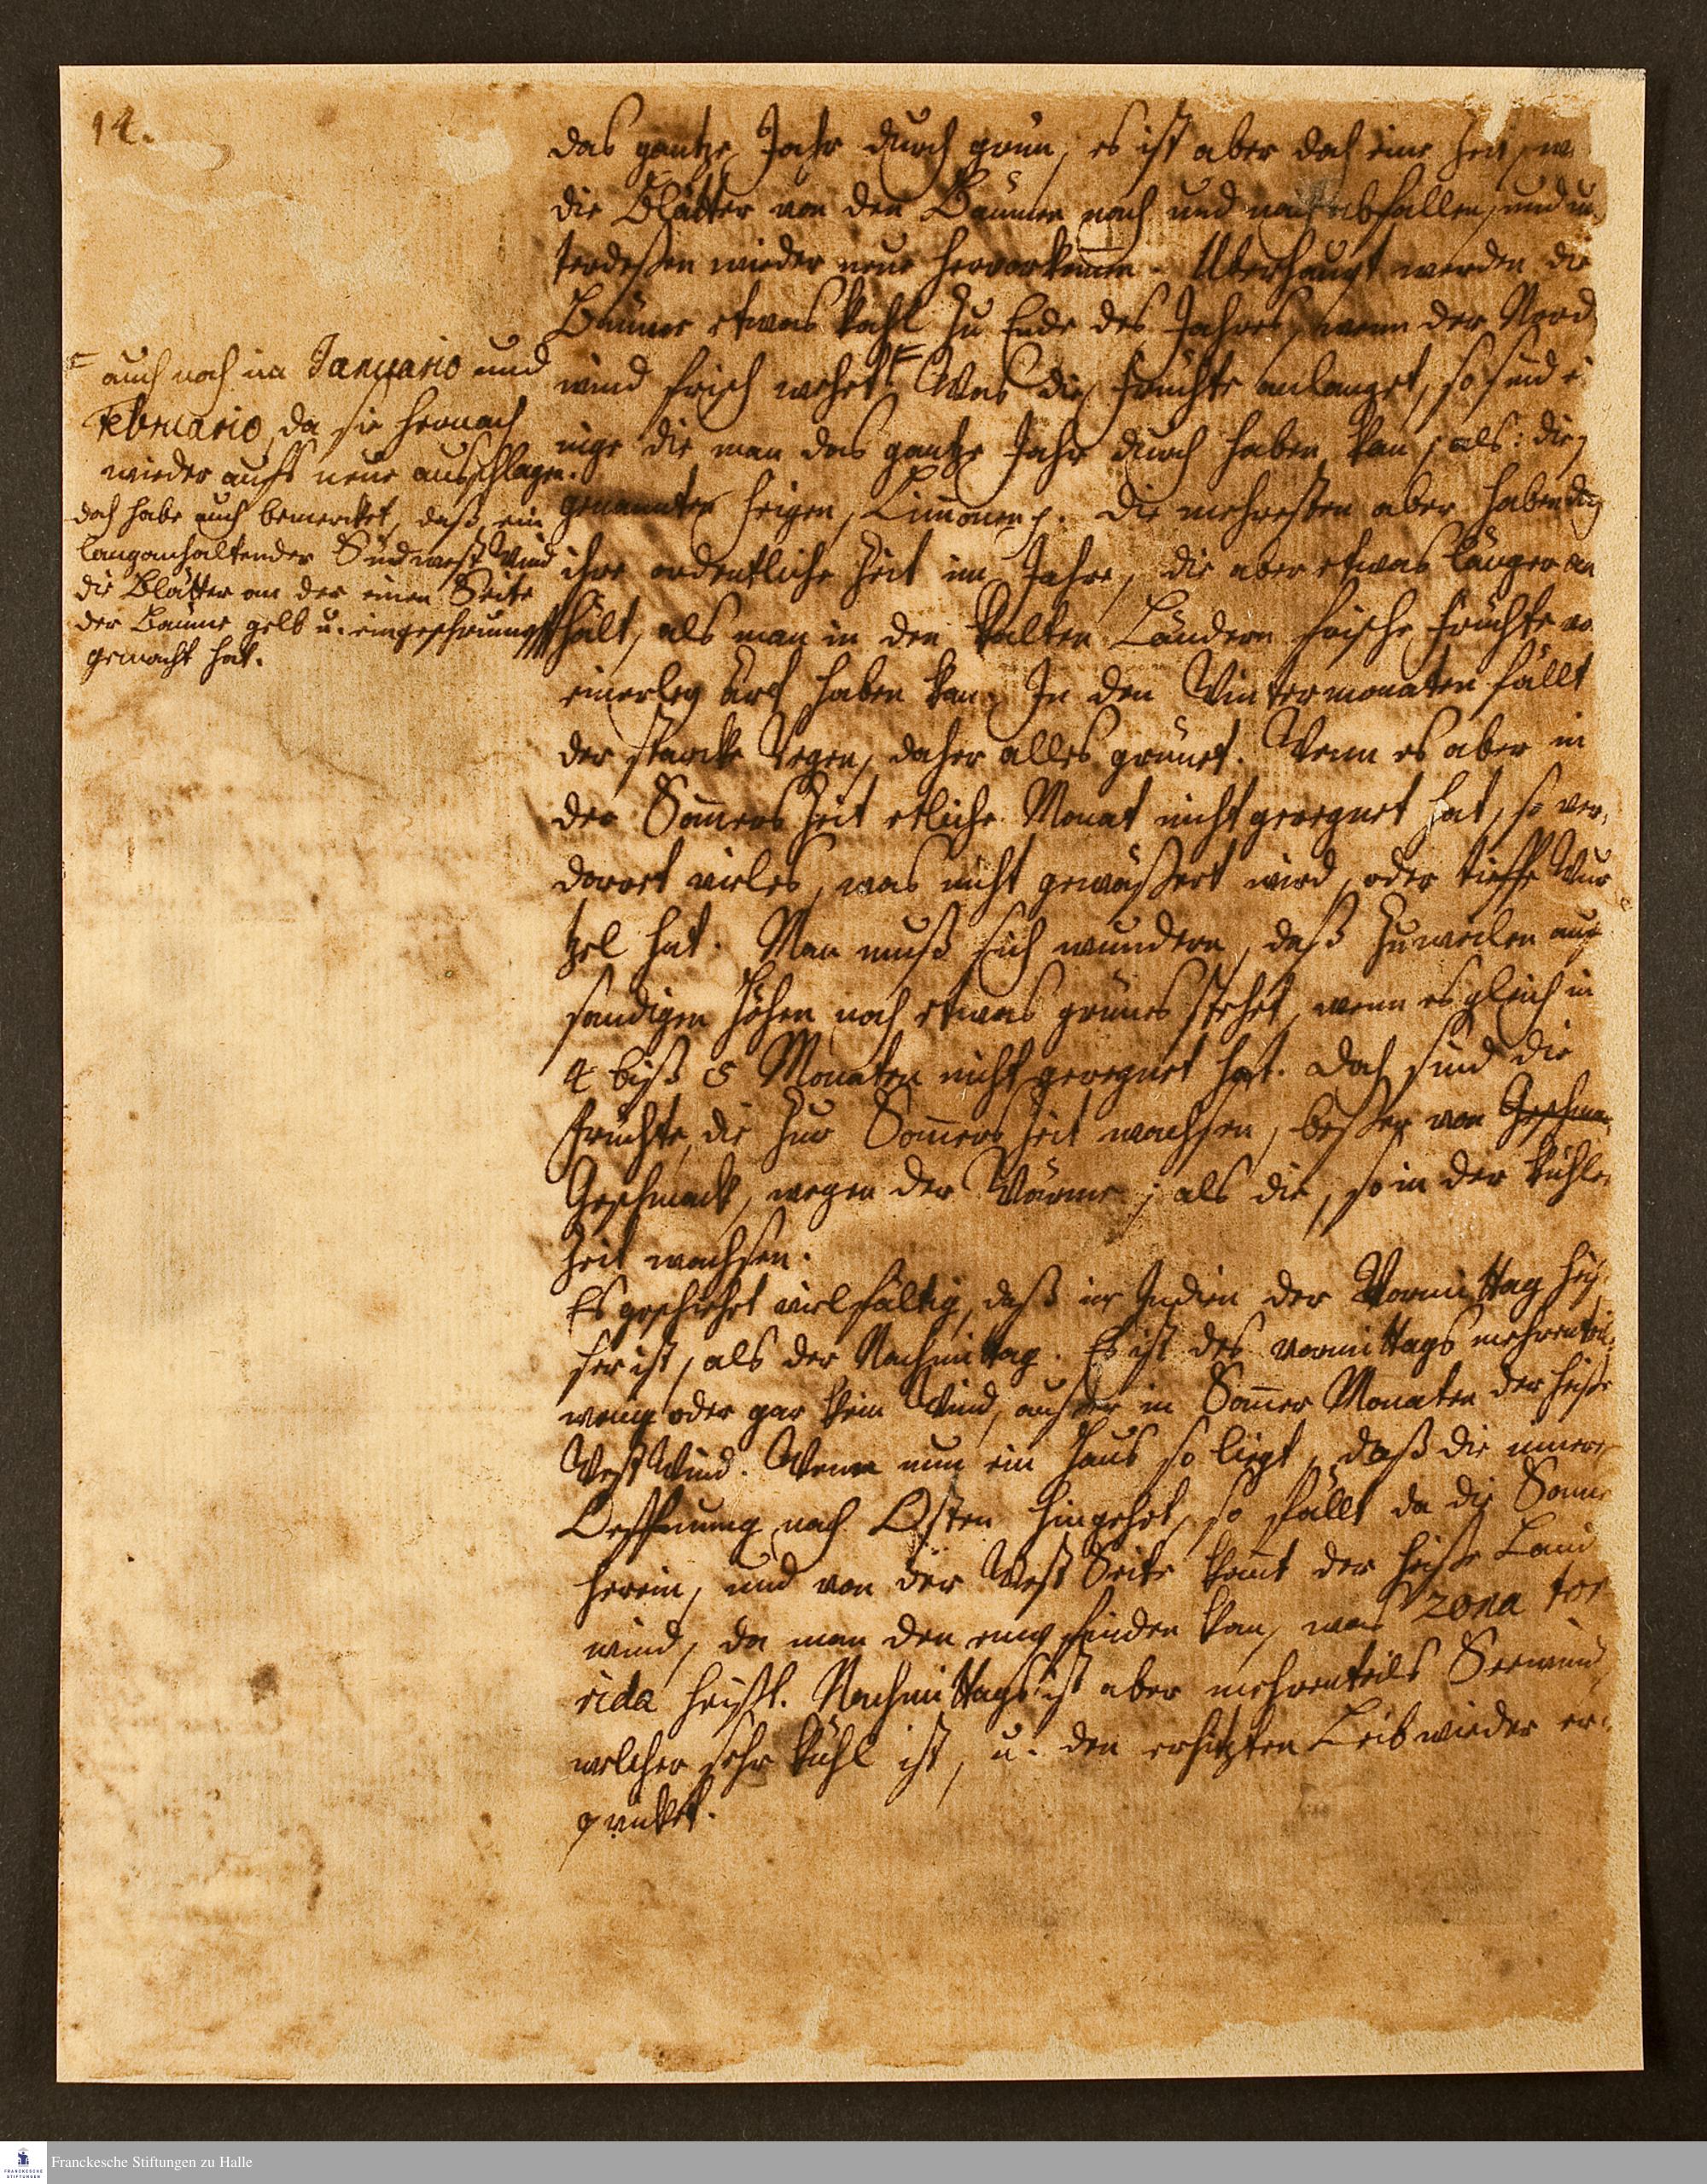 14.
das gantze Jahr durch grün, es ist aber doch eine Zeit, w
die Blätter von den Bäumen nach und nach abfallen, und un
terdeßen wieder neue hervorkommen. Uberhaupt werden die
Bäume etwas kahl zu Ende des Jahres, wenn der Nord
wind frisch wehet. Was die Früchte anlanget, so sind ei
nige die man das gantze Jahr durch haben kan, als: die
genannten Feigen, Limonen p. Die mehresten aber haben
ihre ordentliche Zeit im Jahre, die aber etwas länger an
hält, als man in den kalten Ländern frische Früchte vo
einerley art haben kan. In den Wintermonaten fällt
der starcke Regen, daher alles grünet. Wenn es aber in
der Somers Zeit etliche Monat nicht geregnet hat, so ver,
dorret vieles, was nicht gewäßert wird, oder tieffe Wur
tzel hat. Man muß sich wundern, daß zuweilen auf
sandigen Höhen noch etwas grünes stehet, wenn es gleich in
4 biß 5 Monaten nicht geregnet hat. Doch sind die
Früchte, die zur Somers Zeit wachsen, beßer von
Geschmack, wegen der Wärme; als die, so in der kühlen
Zeit wachsen.
Es geschiehet vielfältig, daß in Indien der Vormittag heiß
ser ist, als der Nachmittag. Es ist des vormittags mehrenteils
wenig oder gar kein Wind, außer in Somer Monaten der heiße
West Wind. Wenn nun ein Haus so liegt, daß die innere
Oeffnung nach Osten hingehet, so fällt da die Sonne
herein, und von der West Seite komt der heiße Land
wind, da man den empfinden kan, was zona tor
rida heißt. Nachmittags ist aber mehrenteils Seewind,
welcher sehr kühl ist, u. den erhitzten Leib wieder er,
quicket.
auch noch im Januario und
Februario, da sie hernach
wieder aufs neue ausschlagen.
doch habe auch bemercket, daß ein
langanhaltender Südwest Wind
die Blätter an der einen Seite
der Bäume gelb u. eingeschrumpft
gemacht hat.
Franckesche Stiftungen zu Halle
FRANCKESCHE
STIFTUNGEN